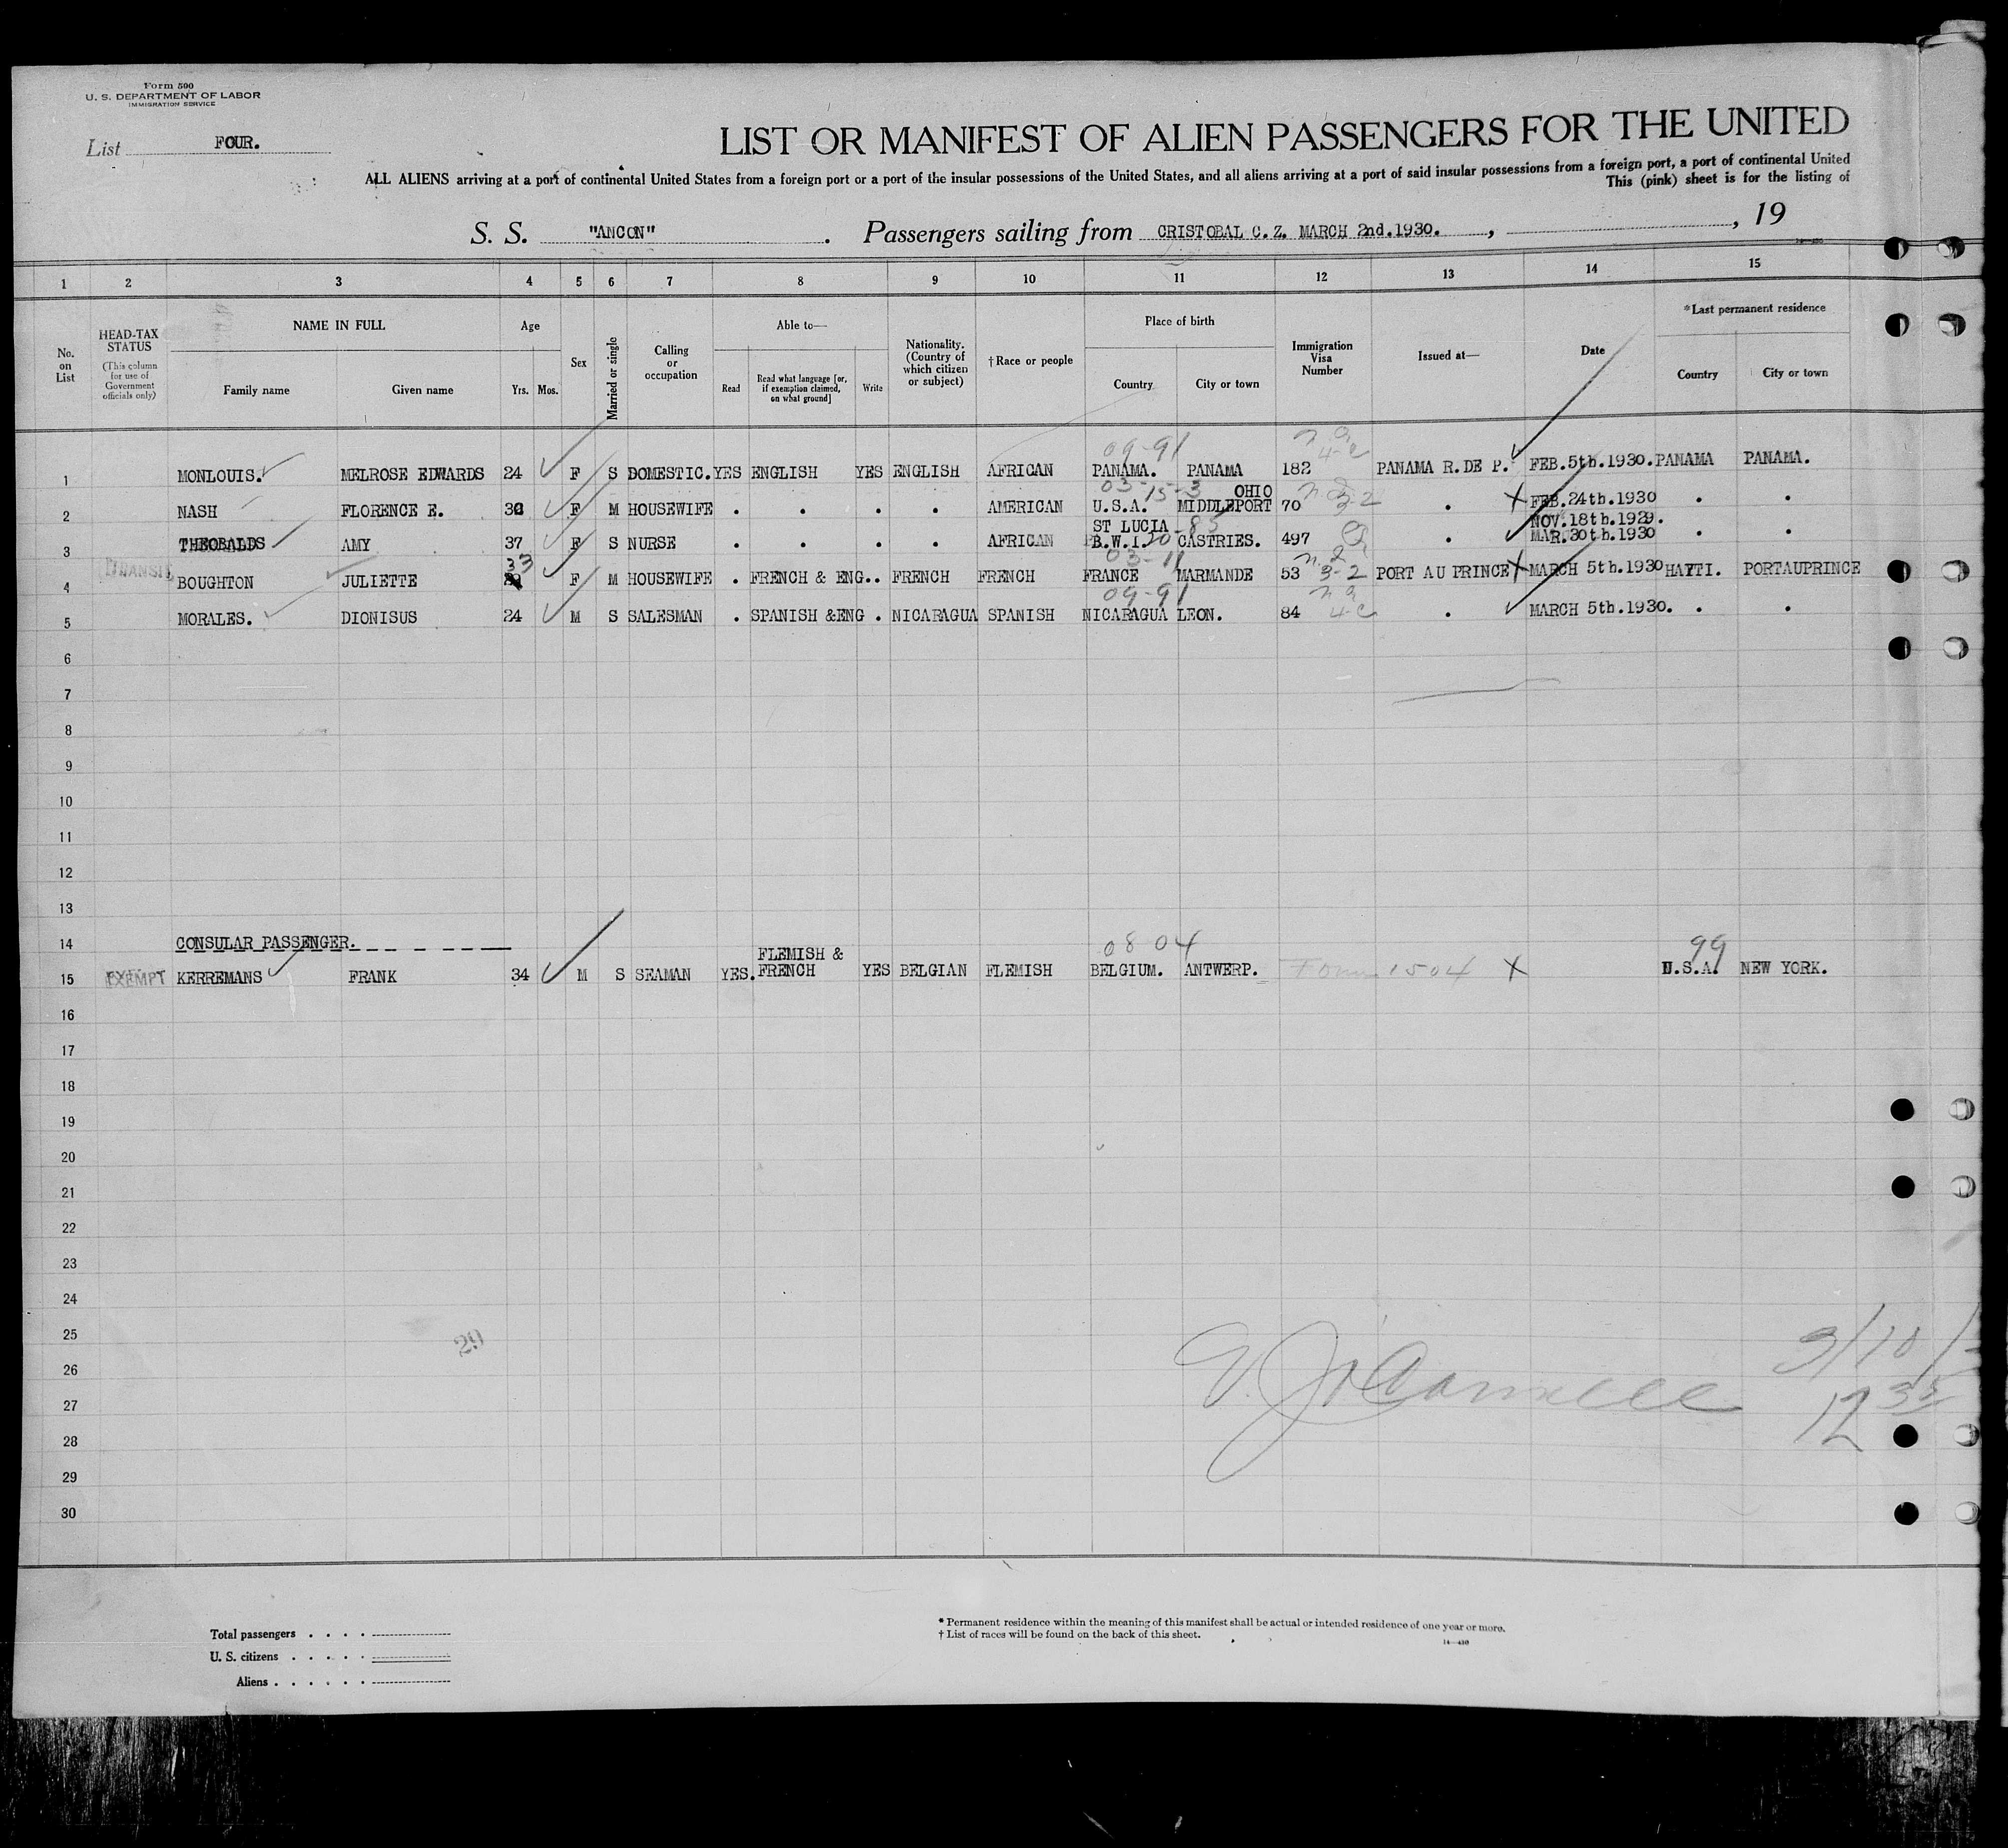 Form 500
U. S. DEPARTMENT OF LABOR
IMMIGRATION SERVICE
List FOUR.
LIST OR MANIFEST OF ALIEN PASSENGERS FOR THE UNITED
ALL ALIENS arriving at a port of continental United States from a foreign port or a port of the insular possessions of the United States, and all aliens arriving at a port of said insular possessions from a foreign port, a port of continental United
This (pink) sheet is for the listing of
S. S. "ANCON" . Passengers sailing from CRISTOBAL C.Z. MARCH 2nd.1930. , , 19
1 2 3 4 5 6 7 8 9 10 11 12 13 14 15
No. on List
HEAD-TAX STATUS
(This column for use of Government officials only)
NAME IN FULL
Family name Given name
Age
Yrs. Mos.
Sex
Married or single
Calling or occupation
Able to—
Read
Read what language [or, if exemption claimed, on what ground]
Write
Nationality. (Country of which citizen or subject)
† Race or people
Place of birth
Country City or town
Immigration Visa Number
Issued at—
Date
*Last permanent residence
Country City or town
09-91
1 MONLOUIS. MELROSE EDWARDS 24 F S DOMESTIC. YES ENGLISH YES ENGLISH AFRICAN PANAMA. PANAMA 182 PANAMA R.DE P. FEB.5th.1930. PANAMA PANAMA.
03-15-3 OHIO
2 NASH FLORENCE E. F M HOUSEWIFE . . . . AMERICAN U.S.A. MIDDLEPORT 70 3-2 . X FEB.24th.1930 . .
ST LUCIA 85 NOV.18th.1929.
3 THEOBALDS AMY 37 F S NURSE . . . . AFRICAN B.W.I. 20 CASTRIES. 497 . MAR.30th.1930 . .
33 03-11
4 TRANSIT BOUGHTON JULIETTE F M HOUSEWIFE . FRENCH & ENG. . FRENCH FRENCH FRANCE MARMANDE 53 3-2 PORT AU PRINCE X MARCH 5th.1930 HAYTI. PORTAUPRINCE
09-91
5 MORALES. DIONISUS 24 M S SALESMAN . SPANISH &ENG . NICARAGUA SPANISH NICARAGUA LEON. 84 . MARCH 5th.1930. . .
6
7
8
9
10
11
12
13
14 CONSULAR PASSENGER.
FLEMISH & 08 04 99
15 EXEMPT KERREMANS FRANK 34 M S SEAMAN YES. FRENCH YES BELGIAN FLEMISH BELGIUM. ANTWERP. Form 1504 X U.S.A. NEW YORK.
16
17
18
19
20
21
22
23
24
25
29
26
27
28
29
30
3/10/
12 35
Total passengers . . . .
U. S. citizens . . . . .
Aliens . . . . . .
* Permanent residence within the meaning of this manifest shall be actual or intended residence of one year or more.
† List of races will be found on the back of this sheet.